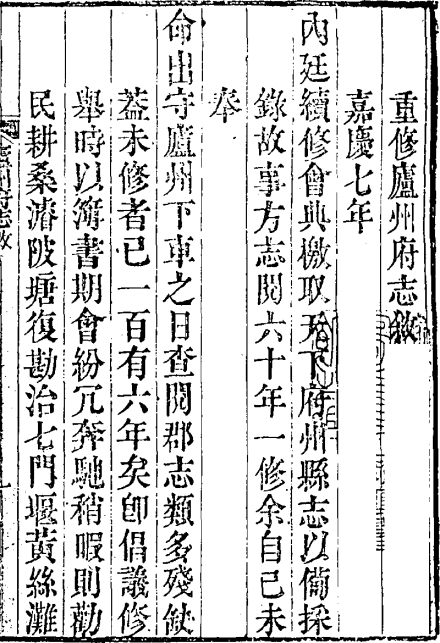 重修廬州府志敘
嘉慶七年
內廷續修會典檄取天下府州縣志以備採
錄故事方志閱六十年一修余自己未
奉
命出守廬州下車之日查閱郡志類多殘缺
葢未修者已一百有六年矣卽倡議修
舉時以簿書期會紛冗奔馳稍暇則勸
民耕桑濬陂塘復勘治七門堰黃絲灘